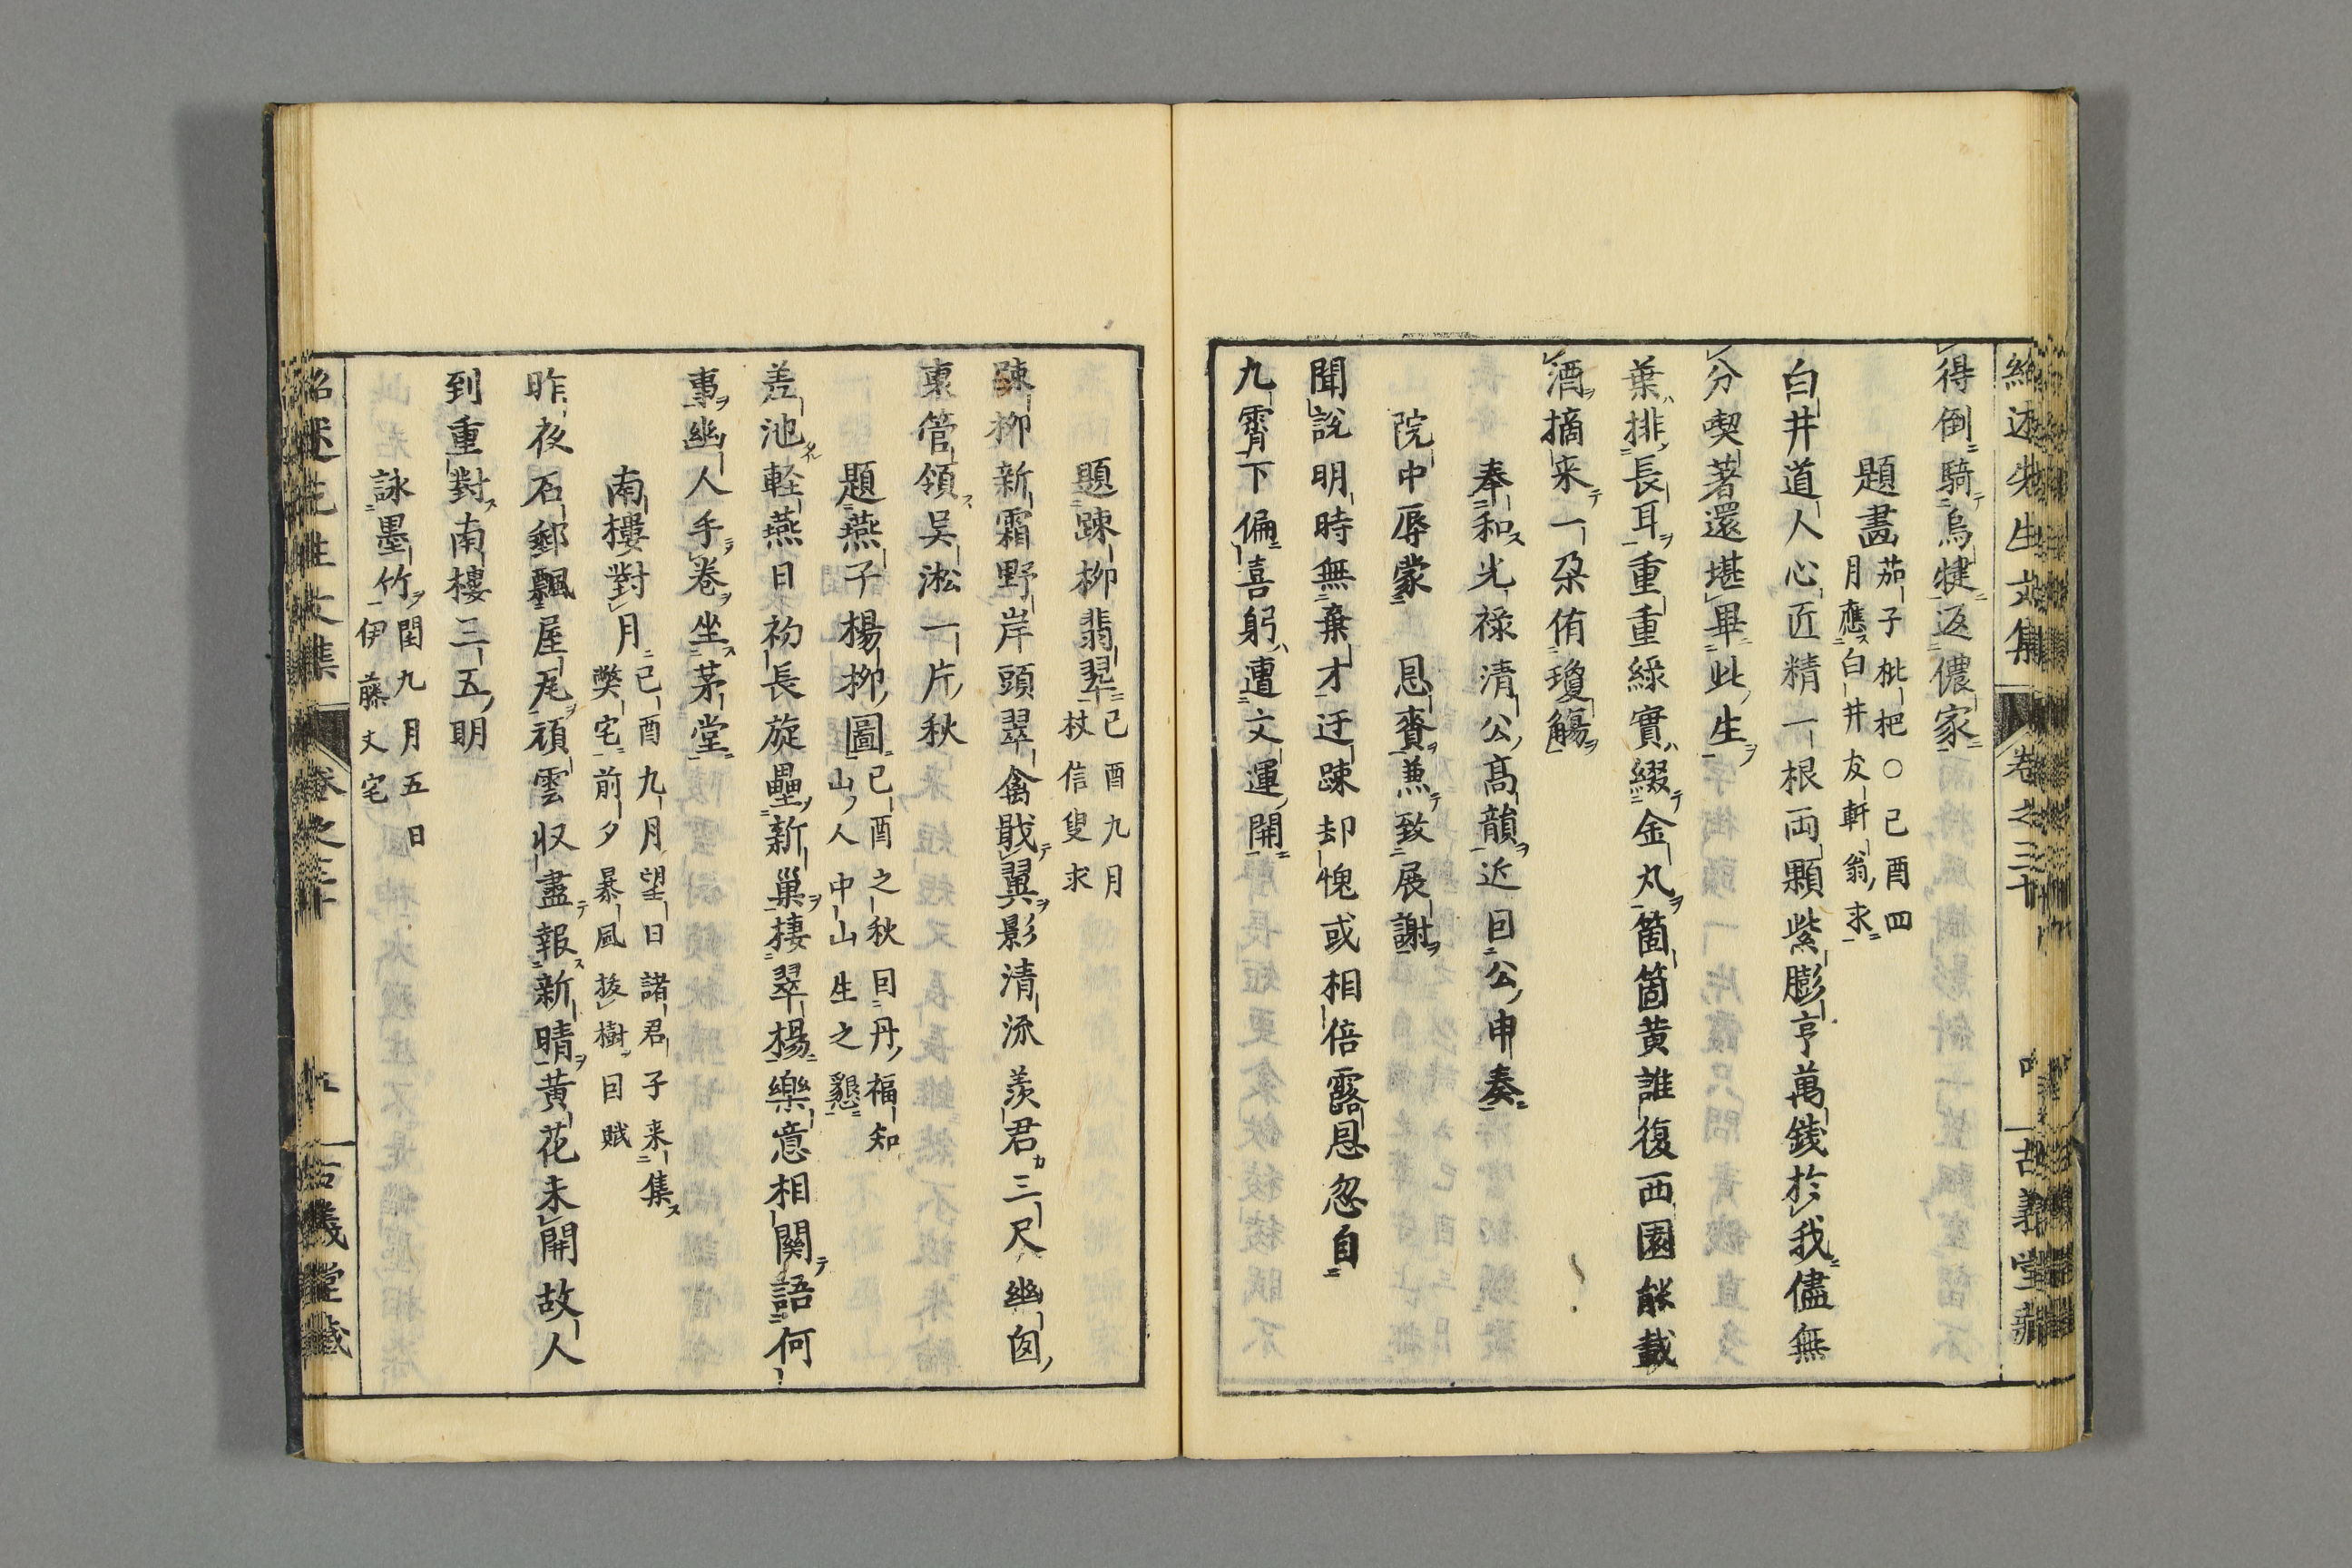 紹述先生文集 卷之三十 古義堂藏
得倒騎烏犍返儂家
題畫 茄子枇杷○己酉四
月應白井友軒翁求
白井道人心匠精一根両顆紫膨亨萬錢於我儘無
分喫著還堪畢此生
葉排長耳重重綠實綴金丸箇箇黄誰復西園能載
酒摘来一朶侑瓊觴
奉和光禄清公高韻近回公申奏
院中辱蒙 恩賚兼致展謝
聞說明時無棄才迂踈却愧或相倍露恩忽自
九霄下偏喜躬遭文運開
題踈柳翡翠 己酉九月
杖信叟求
踈柳新霜野岸頭翠禽戢翼影清流羨君三尺幽囱
裏管領吴淞一片秋
題燕子楊柳圖 己酉之秋回丹福知
山人中山生之懇
差池軽燕日初長旋壘新巢棲翠楊樂意相關語何
事幽人手卷坐茅堂
南樓對月 己酉九月望日諸君子来集
弊宅前夕暴風拔樹回賦
昨夜石郵飄屋瓦頑雲収盡報新晴黄花未開故人
到重對南樓三五明
詠墨竹 閏九月五日
伊藤丈宅
紹述先生文集 卷之三十 五 古義堂藏